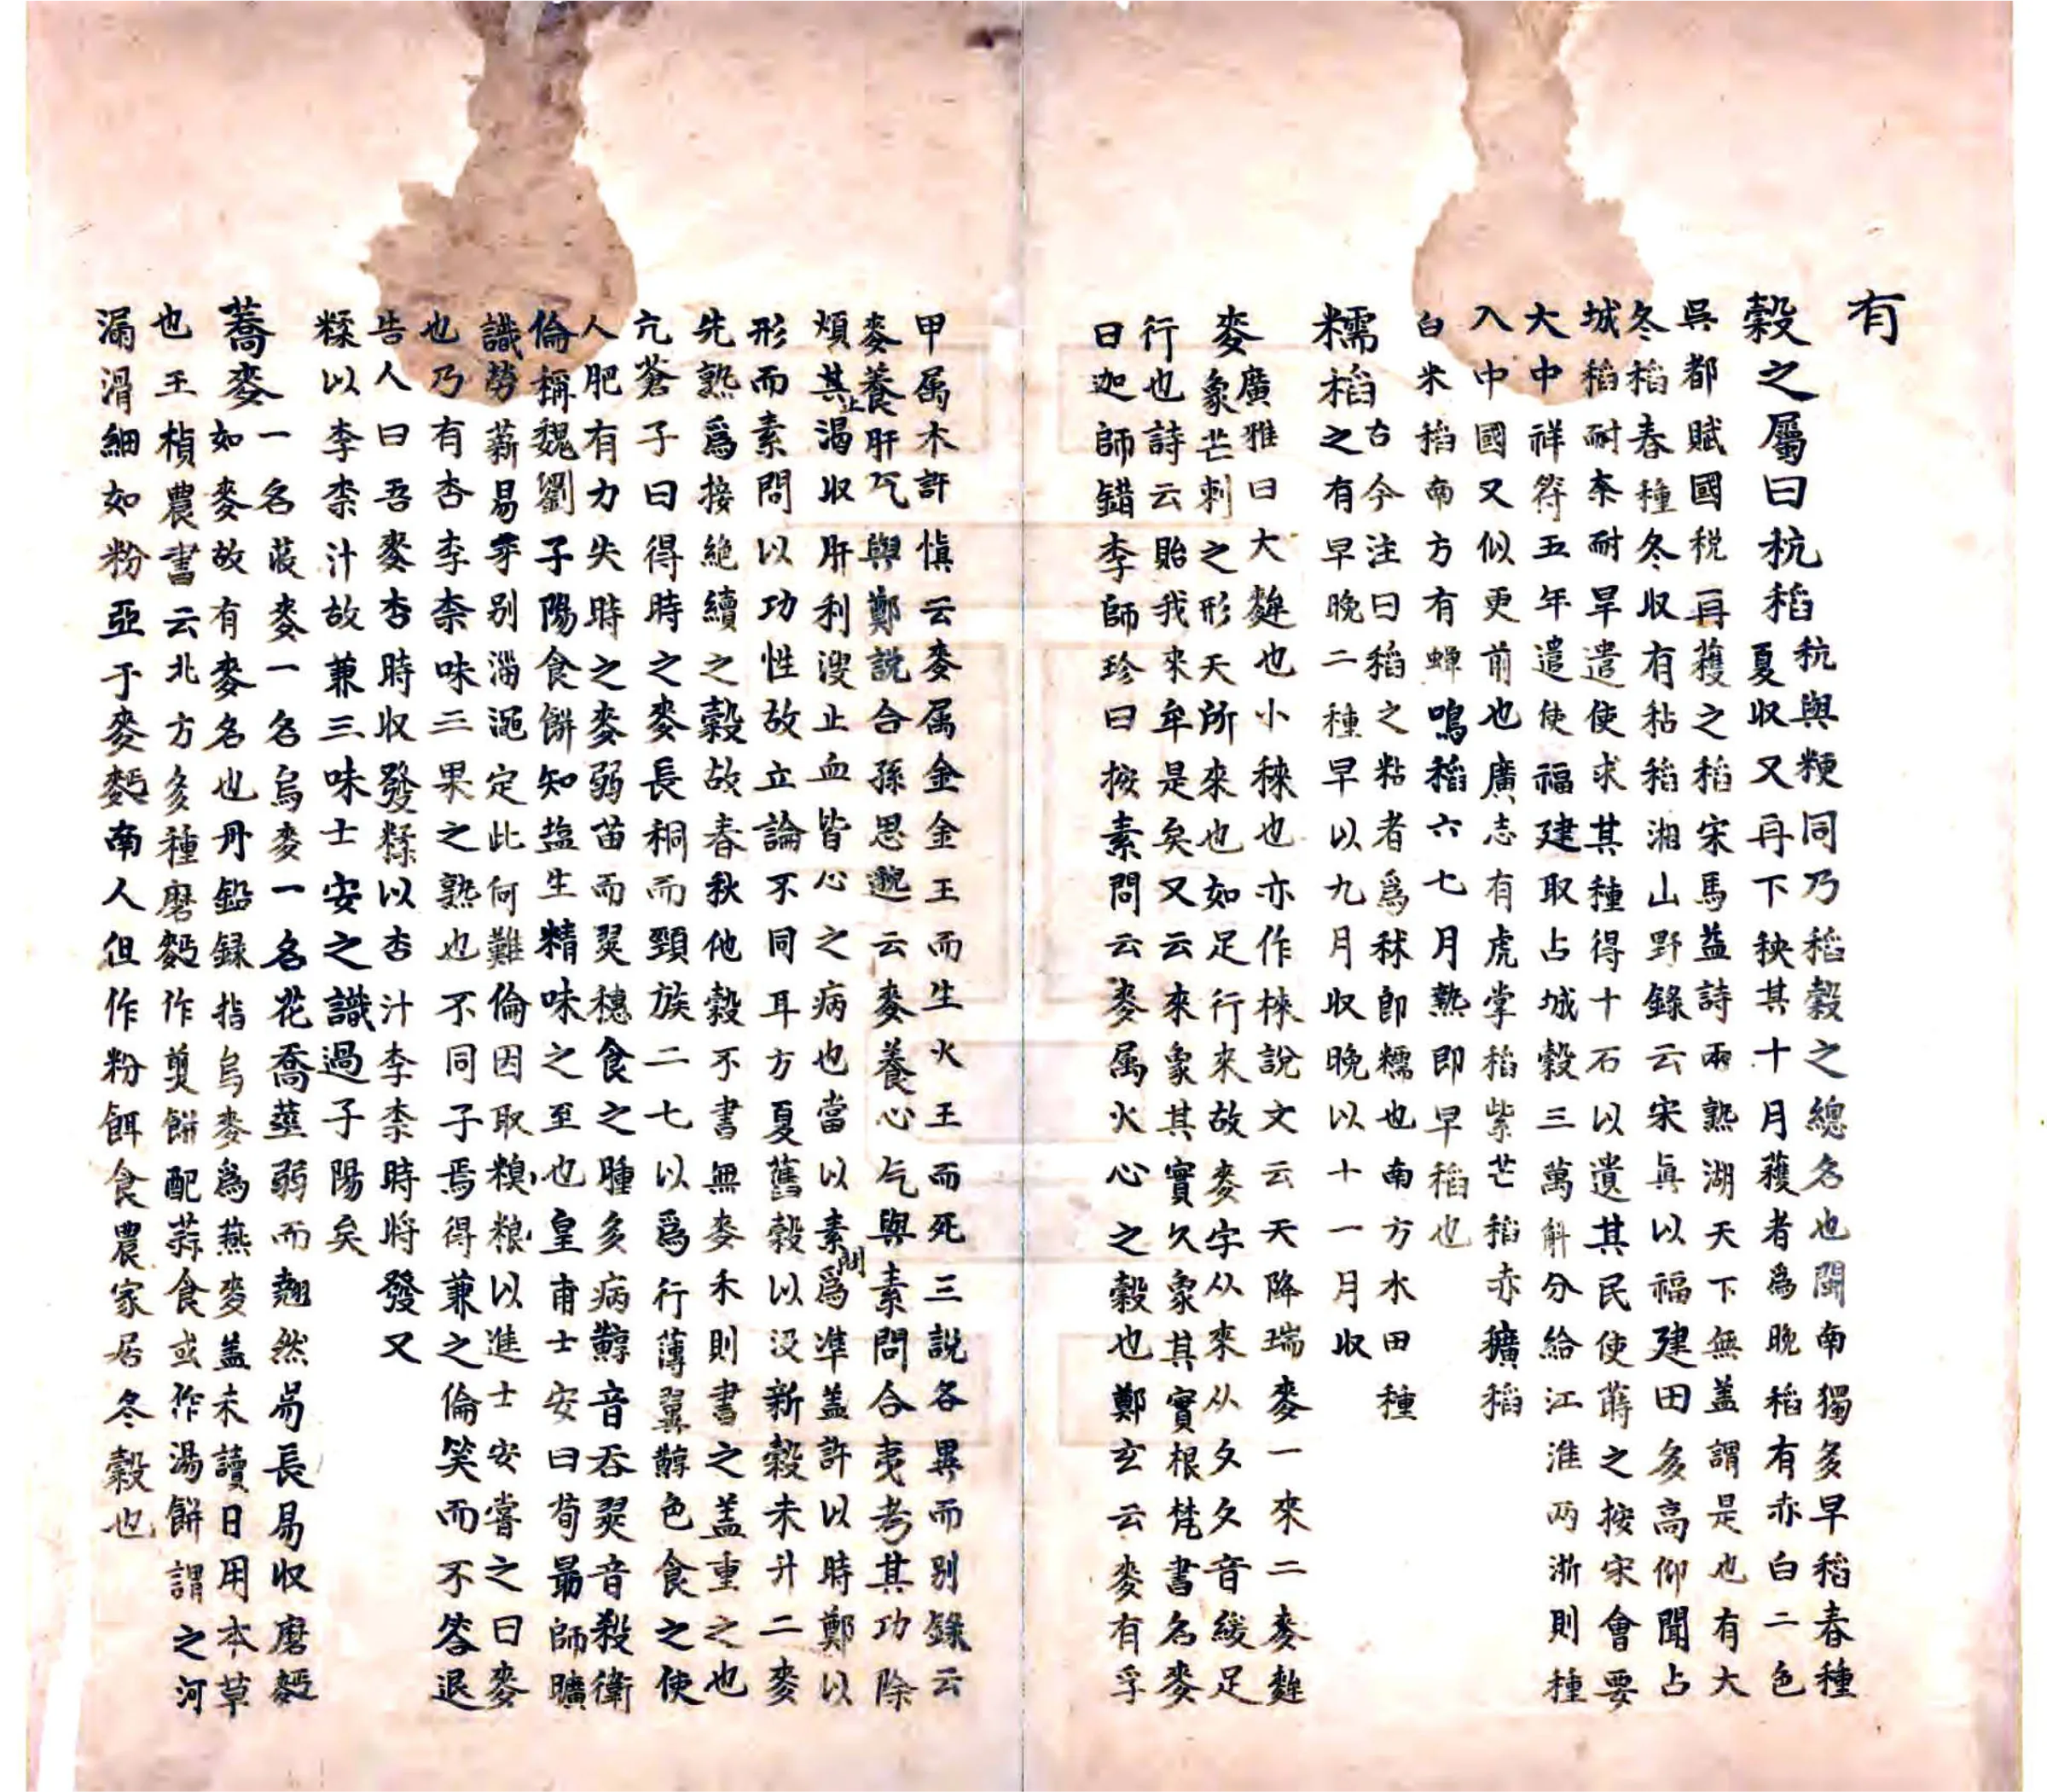 有
穀之屬曰杭稻
秔與粳同乃稻穀之總名也閩南獨多早稻春種
夏収又再下秧其十月蕵者爲晚稻有赤白二色
吳都賦國税再蕵之稻宋馬益詩兩熟湖天下無盖謂是也有大
冬稻春種冬収有秥稻湘山野錄云宋眞以福建田多高仰聞占
城稻耐奈耐旱遣使求其種得十石以遺其民使蒔之按宋會要
大中祥符五年遣使福建取占城穀三萬斛分給江淮两浙則種
入中國又似更前也廣志有虎掌稻紫芒稻赤穬稻
白米稻南方有蟬鳴稻六七月熟即早稻也
糯稻
古今注曰稻之粘者爲秫即糯也南方水田種
之有早晚二種早以九月収晚以十一月収
麥
廣雅曰大麰也小秾也亦作棶說文云天降瑞麥一來二麥麰
象芒刺之形天所來也如足行來故麥字从來从夊夊音綏足
行也詩云貽我來牟是矣又云來象其實久象其實根梵書名麥
曰迦師錯李師珍曰按素問云麥属火心之穀也鄭玄云麥有孚
甲属木許愼云麥属金金王而生火王而死三說各異而别錄云
麥養肝气與鄭說合孫思邈云麥養心气與素問合夷考其功除
煩其止渴収肝利溲止血皆心之病也當以素問爲準盖許以時鄭以
形而素問以功性故立論不同耳方夏舊穀以没新穀未升二麥
先熟爲接絶續之穀故春秋他穀不書無麥禾則書之盖重之也
亢蒼子曰得時之麥長稠而頸族二七以爲行薄翼䵍色食之使
人肥有力失時之麥弱苗而翜穗食之腫多病䵍音吞翜音殺衛
倫稱魏劉子陽食餅知盐生精味之至也皇甫士安曰荀朂師曠
識勞薪易牙别淄澠定此何難倫因取糗粮以進士安嘗之曰麥
也乃有杏李柰味三果之熟也不同子焉得兼之倫笑而不答退
告人曰吾麥杏時収發糅以杏汁李柰時將發又
糅以李柰汁故兼三味士安之識過子陽矣
蕎麥
一名荍麥一名烏麥一名花喬莖弱而翹然易長易収磨麫
如麥故有麥名也丹鉛録指烏麥爲燕麥盖未讀日用本草
也王楨農書云北方多種磨麫作煎餅配蒜食或作湯餅謂之河
漏滑細如粉亞于麥麫南人但作粉餌食農家居冬穀也